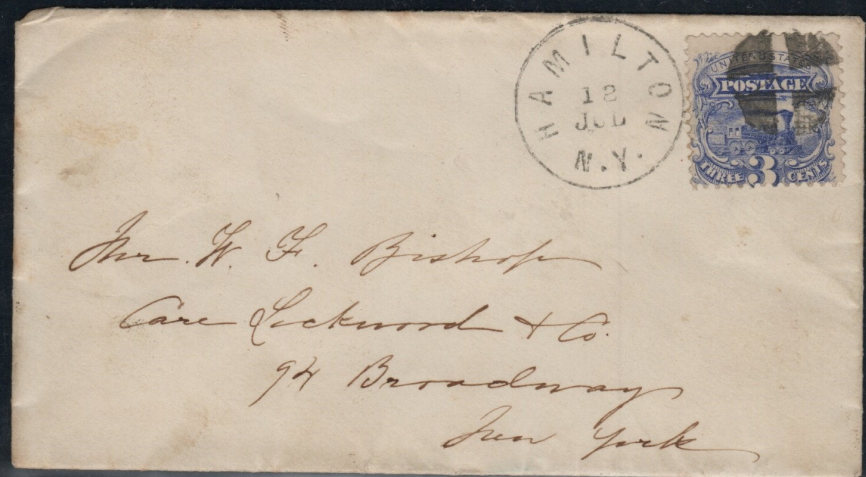 HAMILTON
12
JUL
N.Y.
UNITED STATES
POSTAGE
THREE 3 CENTS
Mr. W. F. Bishop
Care Lockwood & Co.
94 Broadway
New York